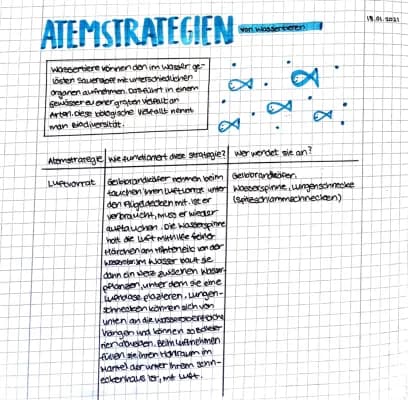 ATEMSTRATEGIEN von Wassertieren
18.01.2021
Wassertiere können den im Wasser ge-
lösten Sauerstoff mit unterschiedlichen
organen aufnehmen. Das führt in einem
Gewässer zu einer großen Vielfalt an
Arten. Diese biologische Vielfalt nennt
man Biodiversität.
Atemstrategie
Wie funktioniert diese Strategie?
Wer wendet sie an?
Luftvorrat
Gelbrandkäfer nehmen beim
tauchen ihren Luftvorrat unter
den Flügeldecken mit. Ist er
verbraucht, muss er wieder
auftauchen. Die Wasserspinne
holt die Luft mithilfe feiner
Härchen am Hinterleib von der
im Wasser baut sie
dann ein Netz zwischen Wasser-
pflanzen, unter dem sie eine
Luftblase plazieren. Lungen-
schnecken können sich von
unten an die Wasseroberfläche
hängen und können so
Beim Luftnehmen
füllen sie ihren Hohlraum im
Mantel der unter ihrem Schn-
eckenhaus ist, mit Luft.
Gelbrandkäfer,
Wasserspinne, Lungenschnecke
(Spitzschlammschnecken)